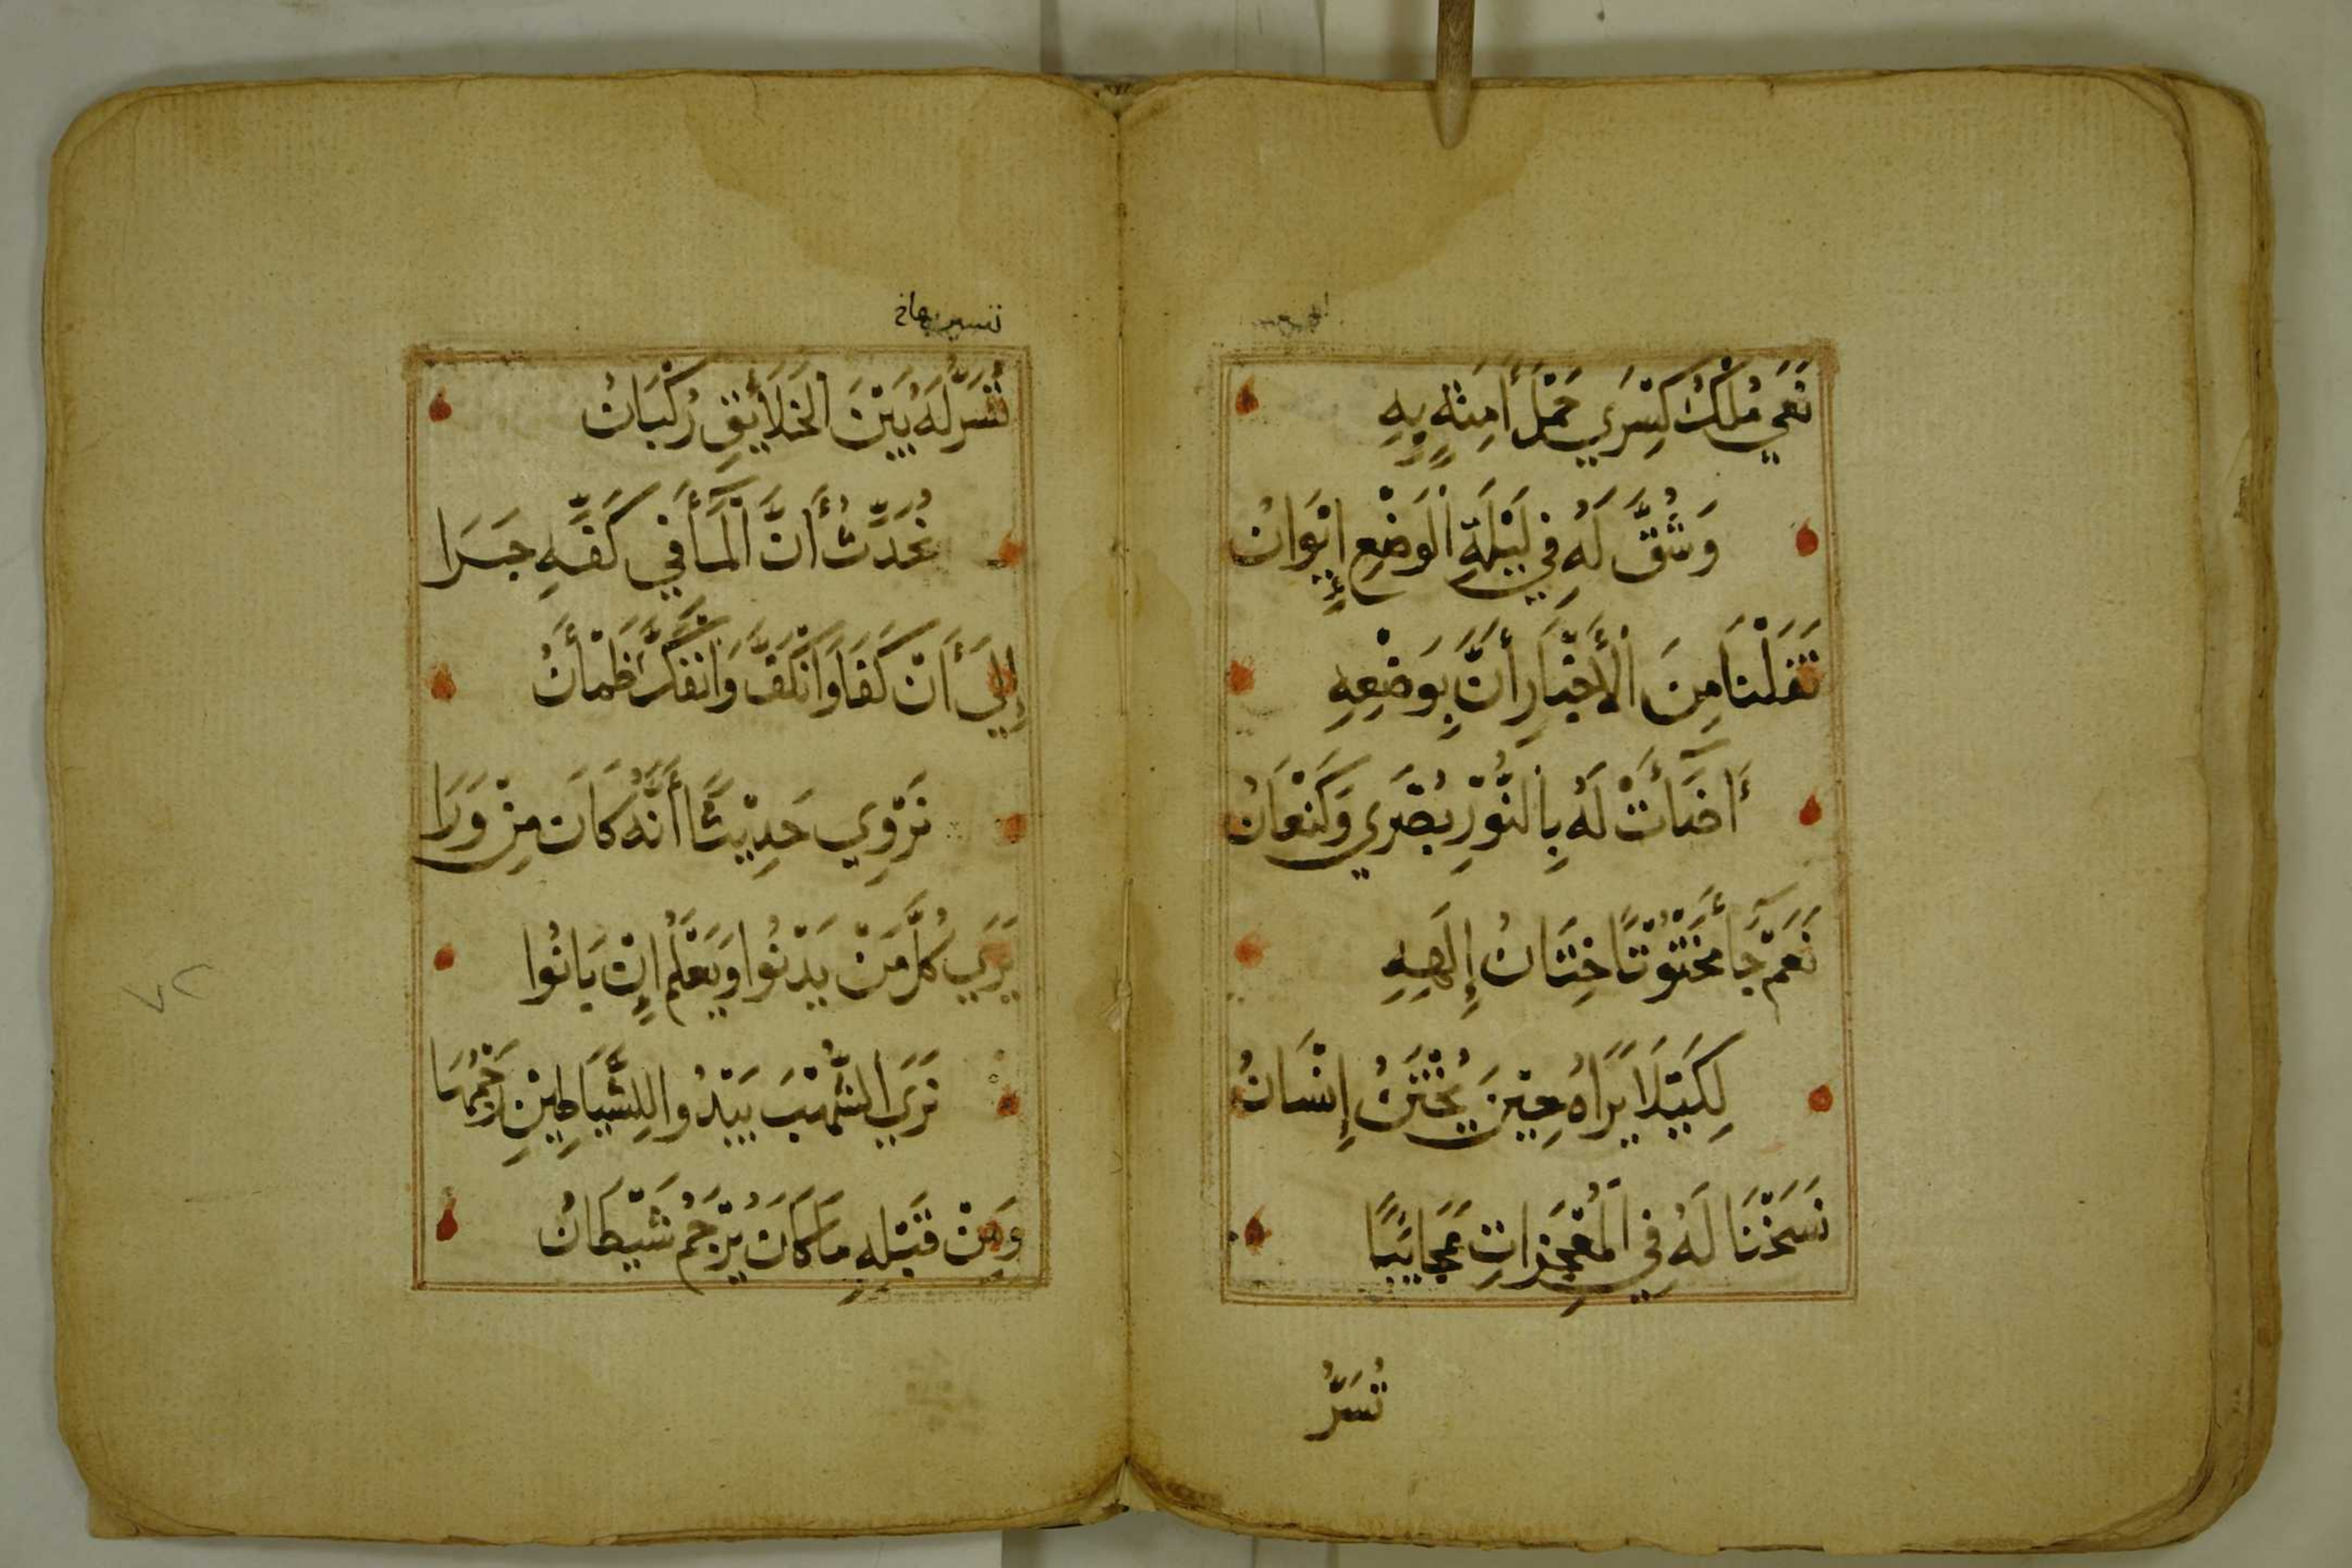 نَعَى مُلْكَ كِسْرَي حَمْلُ أَمِنَةٍ بِهِ
وَشُقَّ لَهُ فِي لَيْلَةِ الْوَضْعِ إِيْوَانُ
نَقَلْنَا مِنَ الْأَخْبَارِ أَنَّ بِوَضْعِهِ
أَضَآئَتْ لَهُ بِالنُّوْرِ بُصْرَي وَكَنْعَانُ
نَعَمْ جَآ مَخْتُوْنًا خِتَانُ إِلَهِهِ
لِكَيْلَا يَرَاهُ حِيْنَ يُخْتَنُ إِنْسَانُ
نَسَخْنَا لَهُ فِي الْمُعْجِزَاتِ عَجَائِبًا
تُسَرُّ
تُسَرُّ لَهُ بَيْنَ الْخَلَائِقِ رُكْبَانُ
نُحَدِّثُ أَنَّ الْمَآ فِي كَفِّهِ جَرَا
إِلَى أَنْ كَفَا وَانْكَفَّ وَانْفَكَّ ظَمْأَنُ
نَرْوِي حَدِيْثًا أَنَّهُ كَانَ مِنْ وَرَا
يَرَي كُلَّ مَنْ يَدْنُوا وَيَعْلَمُ إِنْ بَانُوا
نَرَي الشُّهْبَ يَبْدُوا لِلشَّيَاطِيْنِ رَجْمُهَا
وَمِنْ قَبْلِهِ مَا كَانَ يُرْجَمُ شَيْطَانُ